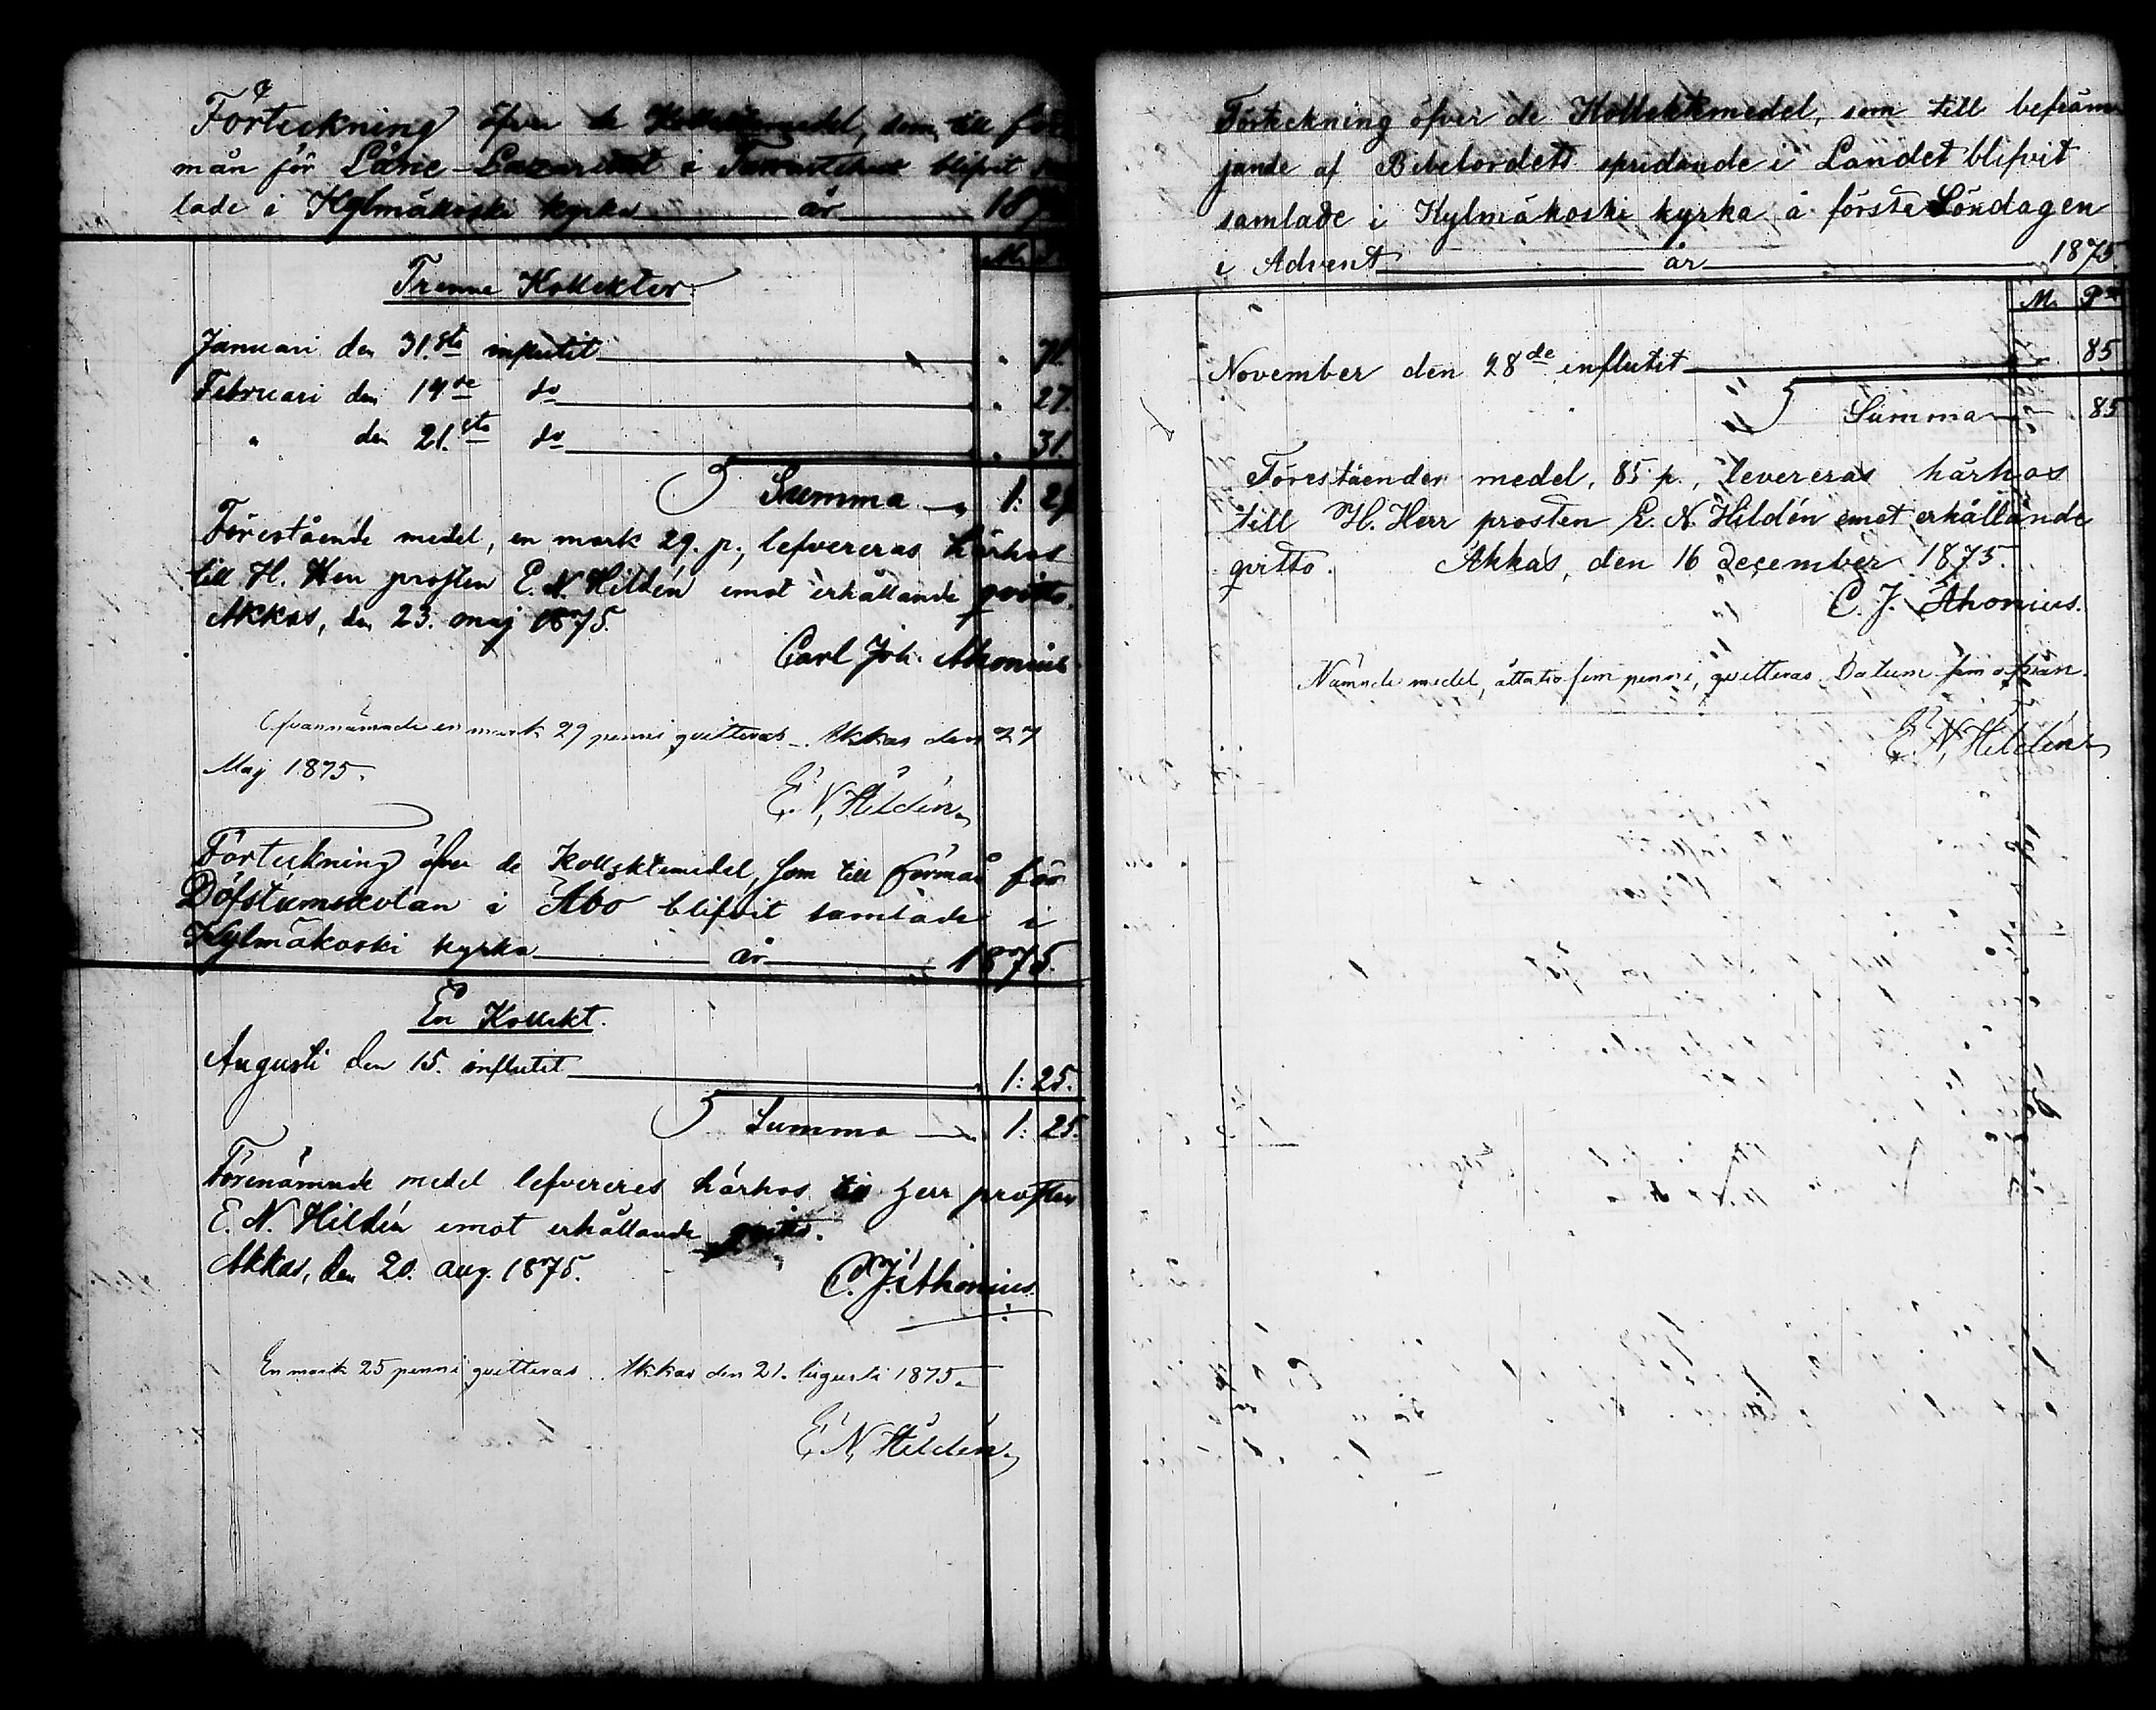 Förteckning öfver de Kollektmedel, som till för
mån för Läne-Lazarettet i Tavastehus blifvit
lade i Kylmäkoski kyrka år 187
M.
Trenne Kollekter.
Januari den 31.sta influtit " 71.
Februari den 14de do " 27.
" den 21.sta do " 31.
Summa " 1: 29
Förestående medel, en mark 29. p., lefvereras härhos
till H. Herr prosten E. N. Hildén emot erhållande qvitto.
Akkas, den 23. maj 1875.
Carl Joh. Ahonius
Ofvannämnde en mark 29 penni qvitteras. Akkas den 27
Maj 1875.
E. N. Hildén
Förteckning öfver de Kollektmedel, som till förmån för
Döfstumskolan i Åbo blifvit samlade i
Kylmäkoski kyrka år 1875.
En Kollekt.
Augusti den 15. influtit " 1: 25.
Summa " 1: 25.
Förenämnde medel lefvereres härhos till Herr prosten
E. N. Hildén emot erhållande qvitto.
Akkas, den 20. aug. 1875.
C. J. Ahonius.
En mark 25 penni qvitteras. Akkas den 21. Augusti 1875.
E. N. Hildén
Förteckning öfver de Kollektmedel, som till befräm
jande af Bibelordets spridande i Landet blifvit
samlade i Kylmäkoski kyrka å första Söndagen
i Advent år 1875.
M. P.
November den 28de influtit " 85
Summa " 85
Förestående medel, 85 p., levereras härhos
till H. Herr prosten E. N. Hildén emot erhållande
qvitto. Akkas, den 16 december 1875.
C. J. Ahonius.
Nämnde medel, åttatio fem penni, qvitteras. Datum som ofvan.
E. N. Hildén